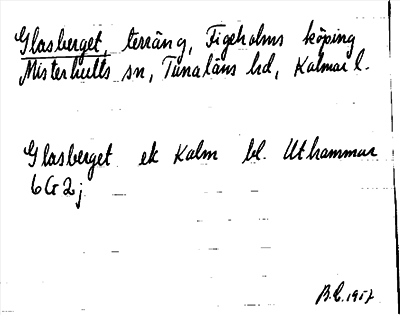 Glasberget, terräng, Figeholms köping
Misterhults sn, Tunaläns hd, Kalmar l.
Glasberget ek Kalm bl. Uthammar
6G2j
B.L. 1957